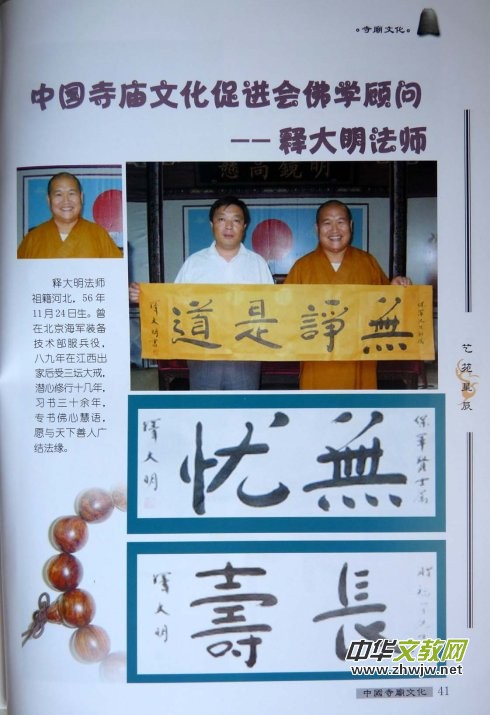 。寺廟文化。
中国寺庙文化促进会佛学顾问
——释大明法师
释大明法师
祖籍河北，56年
11月24日生。曾
在北京海军装备
技术部服兵役，
八九年在江西出
家后受三坛大戒，
潜心修行十几年，
习书三十余年，
专书佛心慧语，
愿与天下善人广
结法缘。
無諍是道
無忧
釋大明
長壽
釋大明
艺苑星辰
中华文教网
www.zhwjw.net
中國寺廟文化 41